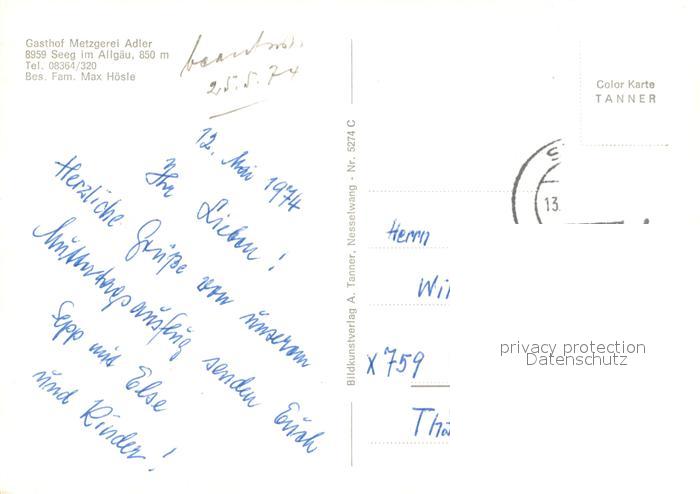 Gasthof Metzgerei Adler
8959 Seeg im Allgäu, 850 m
Tel. 08364/320
Bes. Fam. Max Hösle
beantw.
25.5.74
12. Mai 1974
Ihr Lieben!
Herzliche Grüße von unserem
Muttertagsausflug senden Euch
Sepp mit Else
und Kinder!
Bildkunstverlag A. Tanner, Nesselwang - Nr. 5274 C
Color Karte
TANNER
13.
Herrn
Wil
X 759
Thä
privacy protection
Datenschutz